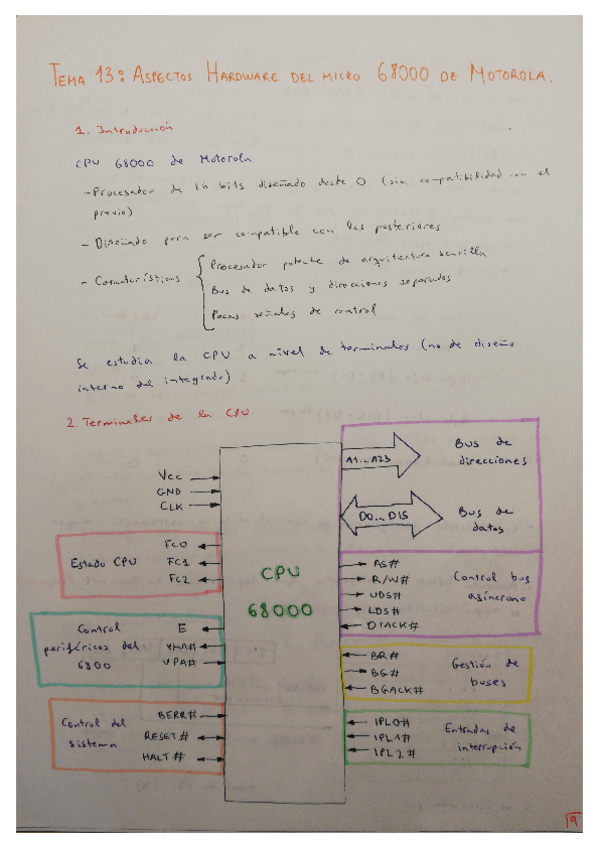 TEMA 13: ASPECTOS HARDWARE DEL MICRO 68000 DE MOTOROLA.
1. Introducción
CPU 68000 de Motorola
- Procesador de 16 bits diseñado desde 0 (sin compatibilidad con el
previo)
- Diseñado para ser compatible con los posteriores
- Características
Procesador potente de arquitectura sencilla
Bus de datos y direcciones separados
Pocas señales de control
Se estudia la CPU a nivel de terminales (no de diseño
interno del integrado)
2. Terminales de la CPU
Vcc
GND
CLK
Estado CPU
FC0
FC1
FC2
Control
periféricos del
6800
E
VMA#
VPA#
Control del
sistema
BERR#
RESET#
HALT#
CPU
68000
A1...A23
Bus de
direcciones
D0...D15
Bus de
datos
AS#
R/W#
UDS#
LDS#
DTACK#
Control bus
asíncrono
BR#
BG#
BGACK#
Gestión de
buses
IPL0#
IPL1#
IPL2#
Entradas de
interrupción
19